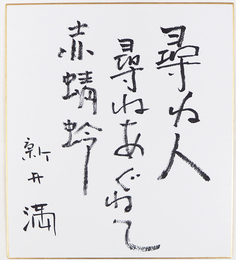 尋ね人
尋ねあぐねて
赤蜻蛉
新井満